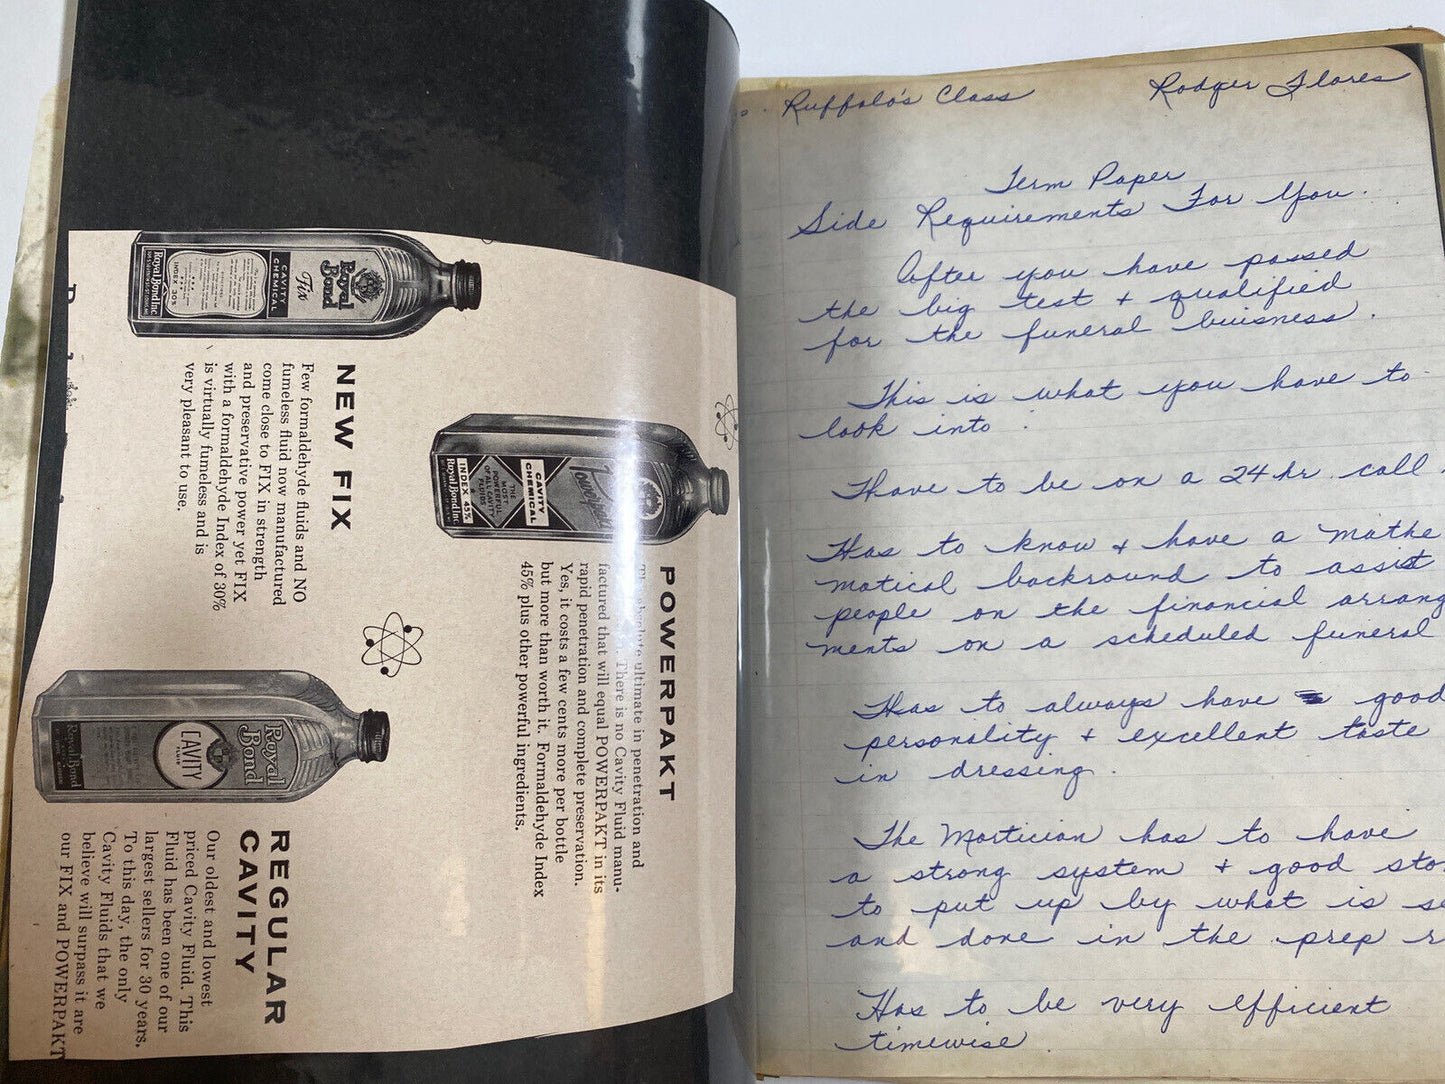 Royal Bond
Fix
CAVITY CHEMICAL
INDEX 30%
Royal Bond Inc.
NEW FIX
Few formaldehyde fluids and NO
fumeless fluid now manufactured
come close to FIX in strength
and preservative power yet FIX
with a formaldehyde Index of 30%
is virtually fumeless and is
very pleasant to use.
Powerpakt
CAVITY CHEMICAL
THE MOST POWERFUL OF ALL CAVITY FLUIDS
INDEX 45%
Royal Bond Inc.
POWERPAKT
The absolute ultimate in penetration and
There is no Cavity Fluid manu-
factured that will equal POWERPAKT in its
rapid penetration and complete preservation.
Yes, it costs a few cents more per bottle
but more than worth it. Formaldehyde Index
45% plus other powerful ingredients.
Royal Bond
CAVITY
FLUID
Royal Bond
REGULAR
CAVITY
Our oldest and lowest
priced Cavity Fluid. This
Fluid has been one of our
largest sellers for 30 years.
To this day, the only
Cavity Fluids that we
believe will surpass it are
our FIX and POWERPAKT
Ruffalo's Class Rodger Flores
Term Paper
Side Requirements For You.
After you have passed
the big test + qualified
for the funeral buisness.
This is what you have to
look into :
Have to be on a 24 hr. call
Has to know + have a mathe
matical backround to assist
people on the financial arrang
ments on a scheduled funeral
Has to always have good
personality + excellent taste
in dressing.
The Mortician has to have
a strong system + good sto
to put up by what is se
and done in the prep r
Has to be very efficient
timewise